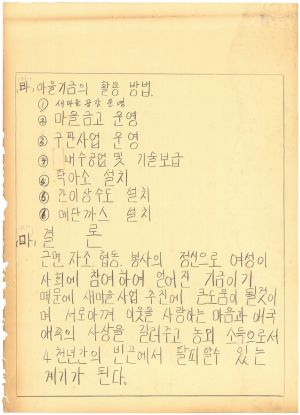 라. 마을기금의 활용 방법.
① 새마을 공장 운영
② 마을금고 운영
② 구판사업 운영
③ 내수공업 및 기술보급
④ 탁아소 설치
⑤ 간이상수도 설치
⑥ 메탄까스 설치
마. 결 론
근면 자조 협동. 봉사의 정신으로 여성이
사회에 참여하여 얻어진 기금이기
때문에 새마을사업 추진에 큰도움이 될것이
며 서로아껴 이웃을 사랑하는 마음과 애국
애족의 사상을 길러주고 농외 소득으로서
4천년간의 빈곤에서 탈피할수 있는
계기가 된다.